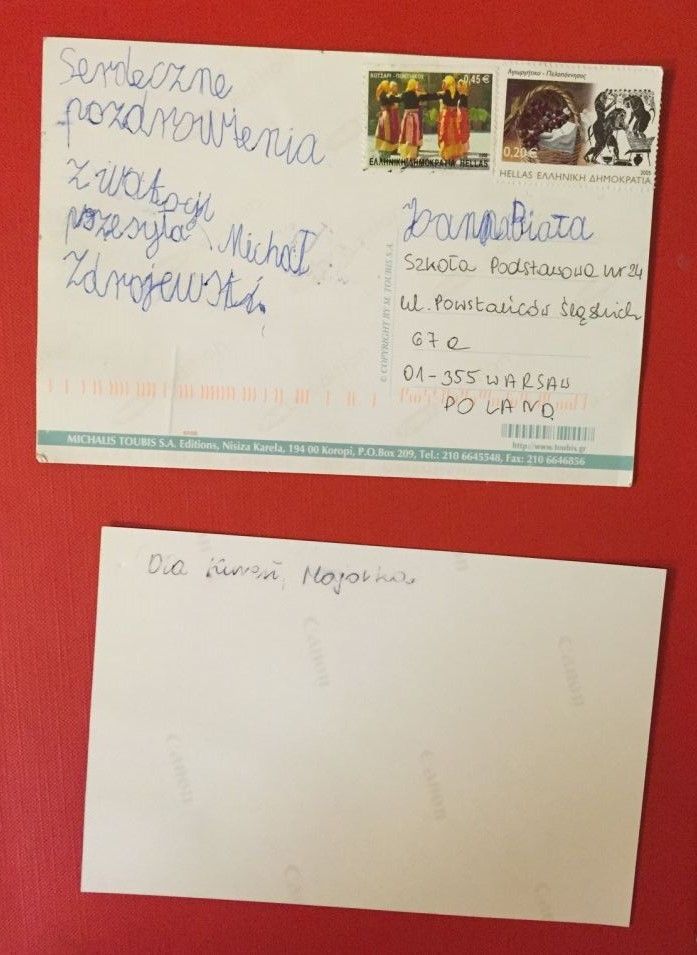 Serdeczne
pozdrowienia
z wakacji
przesyła Michał
Zdrojewski
ΚΟΤΣΑΡΙ - ΠΟΝΤΙΑΚΟΣ
0,45 €
ΕΛΛΗΝΙΚΗ ΔΗΜΟΚΡΑΤΙΑ HELLAS
Αγιωργήτικο - Πελοπόννησος
0,20 €
2005
HELLAS ΕΛΛΗΝΙΚΗ ΔΗΜΟΚΡΑΤΙΑ
Biała
Szkoła Podstawowa nr 24
ul. Powstańców Śląskich
67a
01-355 WARSAW
POLAND
© COPYRIGHT BY M. TOUBIS S.A.
http://www.toubis.gr
MICHALIS TOUBIS S.A. Editions, Nisiza Karela, 194 00 Koropi, P.O.Box 209, Tel.: 210 6645548, Fax: 210 6646856
Dla
Canon
Canon
Canon
Canon